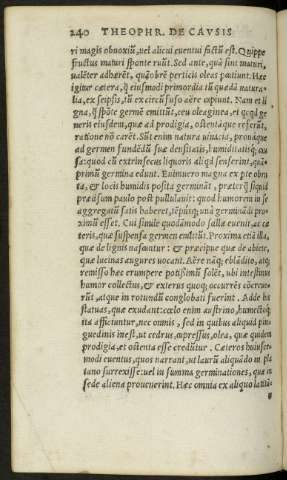 240 THEOPHR. DE CAVSIS
ri magis obnoxiũ, vel alicui euentui factũ est. Quippe
fructus maturi sponte ruũt. Sed ante, quã sint maturi,
ualẽter adhærẽt, quãobrẽ perticis oleas pariunt. Hæc
igitur cætera, q̃ eiusmodi primordia tũ quadã natura-
lia, ex seipsis, tũ ex circũ fuso aëre capiunt. Nam et ũ
gna, q̃ spõte germẽ emittũt, ceu oleaginea, et quod ge
neris eiusdem, quæ ad prodigia, ostentaque referũt,
ratione nõ carẽt. Sũt enim natura uiuacia, pronáque
ad germen fundẽdũ suæ densitatis, humiditatisq́; cau
sa: quod cũ extrinsecus liquoris aliqd senserint, quã-
primũ germina edunt. Enimuero magna ex pte obru
ta, & locis humidis posita germinãt, præter q̃ siquid
præusum paulo post pullulauit: quod humorem in se
aggregatũ satis haberet, tẽpusq́; und germinãdi pro-
ximũ esset. Cui simile quodãmodo scilla eue nit, ac cæ
teris, quæ suspensa germen emittũt. Proxima et illa,
quæ de lignis nascũtur: & præcipue quæ de abiete,
quæ lucinas augures uocant. Aëre nãq; eblãdito, atq;
remisso hæc erumpere potissimũ solẽt, ubi intestinus
humor collectus, & exterus quoq; occurrẽs cõcreue-
rũt, atque in rotundũ conglobati fuerint. Adde his
statuas, quæ exudant: cœlo enim austrino, humectoq́;
tis afficiuntur, nec omnis, sed in quibus aliquid pin-
guedinis inest, ut cedrus, cupressus, olea, quæ quidem
prodigia, et ostenta esse credũtur. Cæteros huiusce-
modi euentus, quos narrant, ut laurũ aliquãdo in pla
tano surrexisse: uel in summa germinationes, quæ in
sede aliena prouenerint. Hæc omnia ex aliquo latitã-